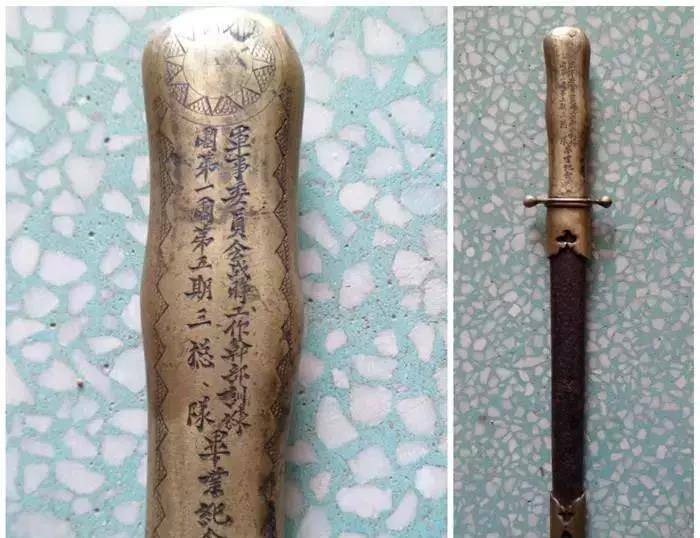 軍事委員会战時工作幹部訓練
團第一團第五期三總、隊畢業紀念